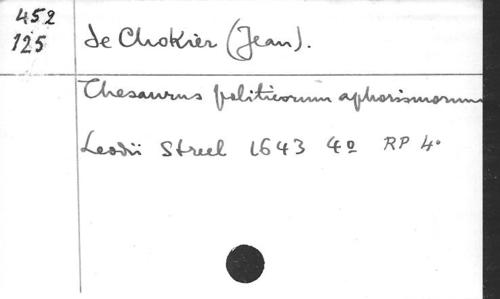 452
125
de Chokier (Jean).
Thesaurus politicorum aphorismorum
Leodii Streel 1643 4º RP 4º